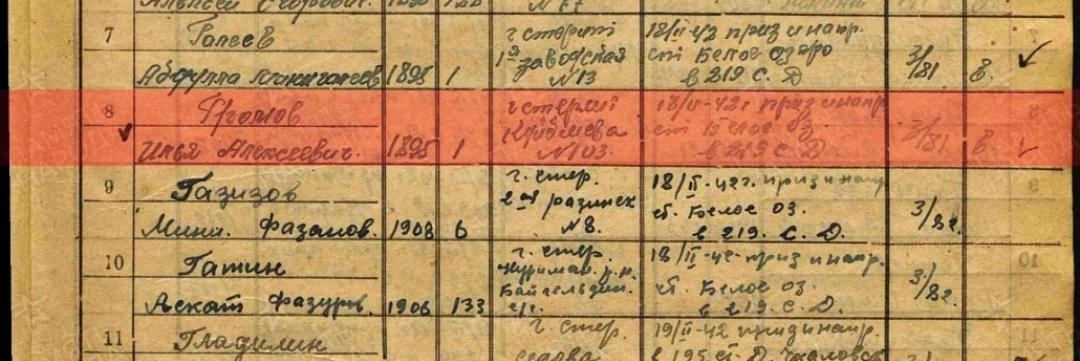 Алексей
7 Галеев г стерлит 18/II-42 приз и напр.
1я заводская ст Белое озеро
Абдулла 1895 1 N 13 в 219 с. Д 3/81 Е.
8 Громов г стерлит 18/II-42г приз и напр
Куйбышева ст Белое оз
Илья Алексеевич. 1895 1 N 103. в 219 с. Д 3/81 Е.
9 Газизов г. стер. 18/II-42г. приз и напр
2ая разинск ст. Белое оз.
Мини. 1908 6 N 8. в 219. С. Д. 3/82.
10 Гатин г. стер. 18/II-42 приз и напр.
р.н. ст. Белое оз.
Аскат 1906 133 с/с. в 219. с. Д. 3/82.
11 Гладилин г. стер. 19/II-42 приз и напр.
в 195